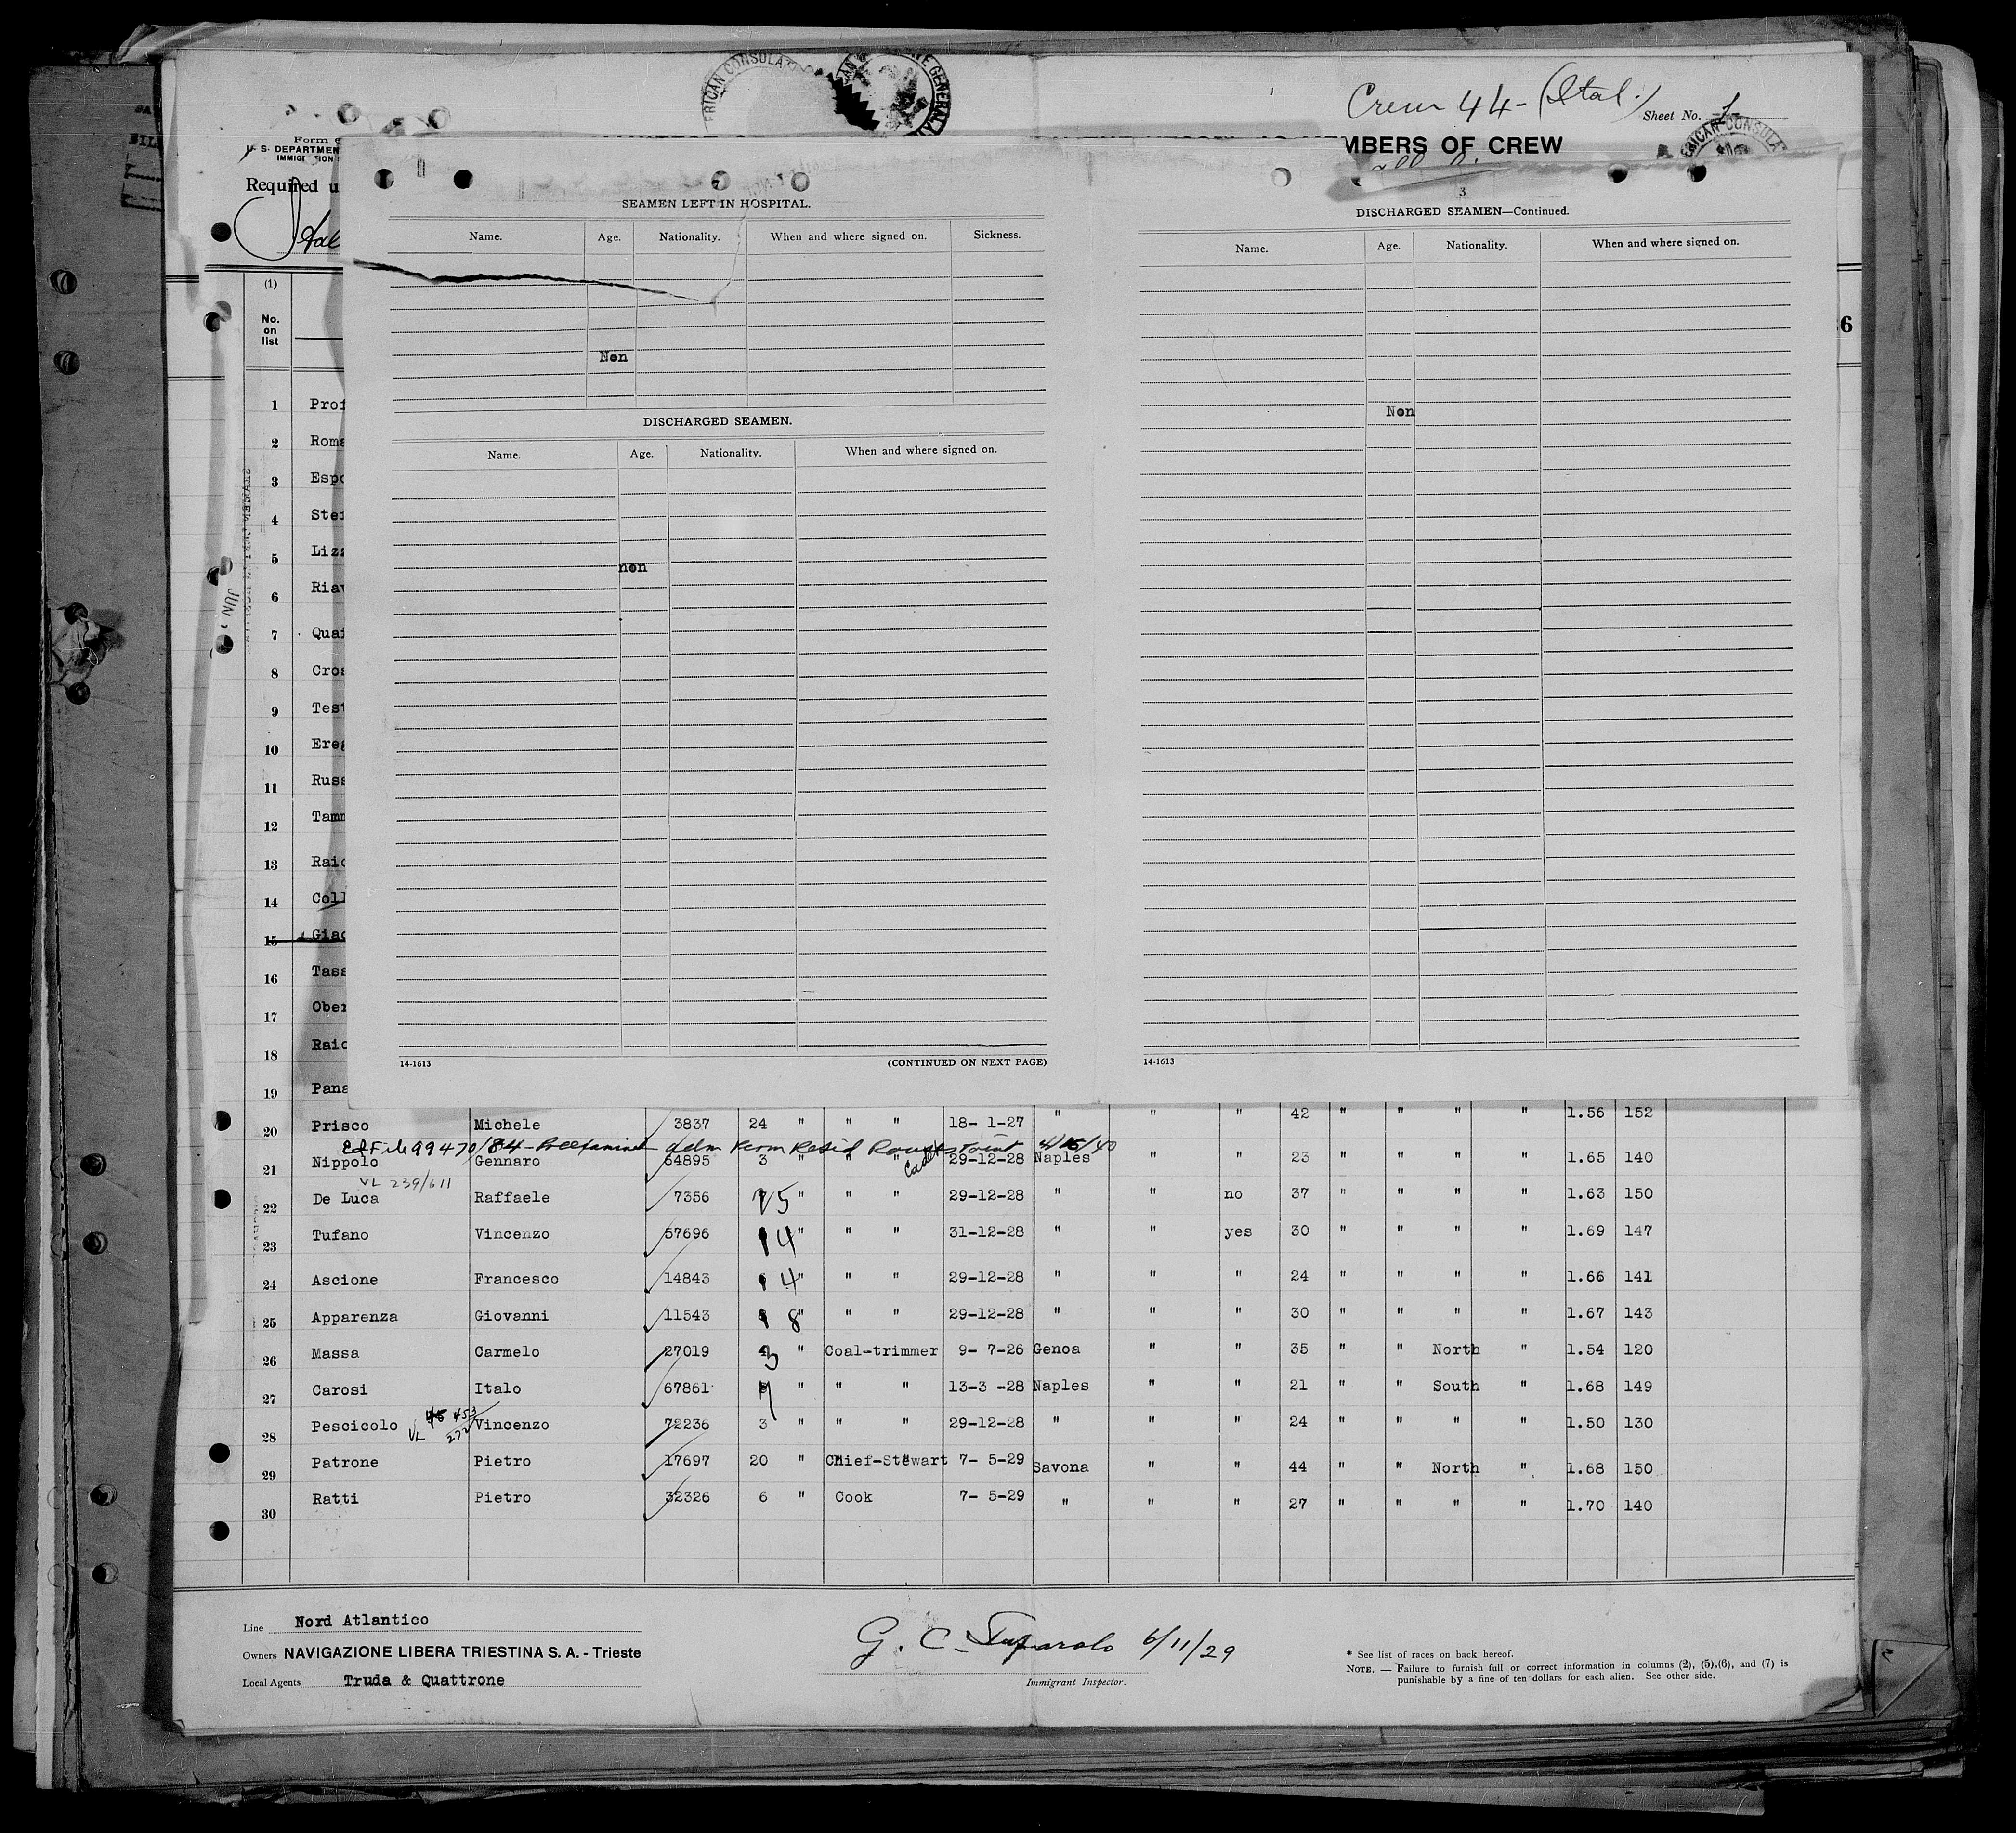 Crew 44- (Ital.)
Sheet No. 1
MBERS OF CREW
Form
U. S. DEPARTMEN
Required u
Ital
SEAMEN LEFT IN HOSPITAL.
Name. Age. Nationality. When and where signed on. Sickness.
Non
DISCHARGED SEAMEN.
Name. Age. Nationality. When and where signed on.
non
14-1613 (CONTINUED ON NEXT PAGE)
3
DISCHARGED SEAMEN—Continued.
Name. Age. Nationality. When and where signed on.
Non
14-1613
6
(1)
No.
on
list
1 Prof
2 Roma
3 Espo
4 Stei
5 Lizz
6 Riav
7 Quai
8 Cros
9 Test
10 Ereg
11 Russ
12 Tamm
13 Raic
14 Coll
15 Giac
16 Tass
17 Ober
18 Raic
19 Pana
JUN
20 Prisco Michele 3837 24 " " " 18- 1-27 " " " 42 " " " " 1.56 152
Ed File 99470/84- Preexamined adm Perm Resid Rouses Point 4/15/40
21 Nippolo Gennaro 64895 3 " " " 29-12-28 Naples " " 23 " " " " 1.65 140
VL 239/611
22 De Luca Raffaele 7356 15 " " " 29-12-28 " " no 37 " " " " 1.63 150
23 Tufano Vincenzo 57696 14 " " " 31-12-28 " " yes 30 " " " " 1.69 147
24 Ascione Francesco 14843 14 " " " 29-12-28 " " " 24 " " " " 1.66 141
25 Apparenza Giovanni 11543 18 " " " 29-12-28 " " " 30 " " " " 1.67 143
26 Massa Carmelo 27019 3 " Coal-trimmer 9- 7-26 Genoa " " 35 " " North " 1.54 120
27 Carosi Italo 67861 7 " " " 13-3 -28 Naples " " 21 " " South " 1.68 149
28 Pescicolo VL 453/272 Vincenzo 72236 3 " " " 29-12-28 " " " 24 " " " " 1.50 130
29 Patrone Pietro 17697 20 " Chief-Stewart 7- 5-29 Savona " " 44 " " North " 1.68 150
30 Ratti Pietro 32326 6 " Cook 7- 5-29 " " " 27 " " " " 1.70 140
Line Nord Atlantico
Owners NAVIGAZIONE LIBERA TRIESTINA S. A. - Trieste
Local Agents Truda & Quattrone
G. C. 6/11/29
Immigrant Inspector.
* See list of races on back hereof.
NOTE. — Failure to furnish full or correct information in columns (2), (5),(6), and (7) is
punishable by a fine of ten dollars for each alien. See other side.